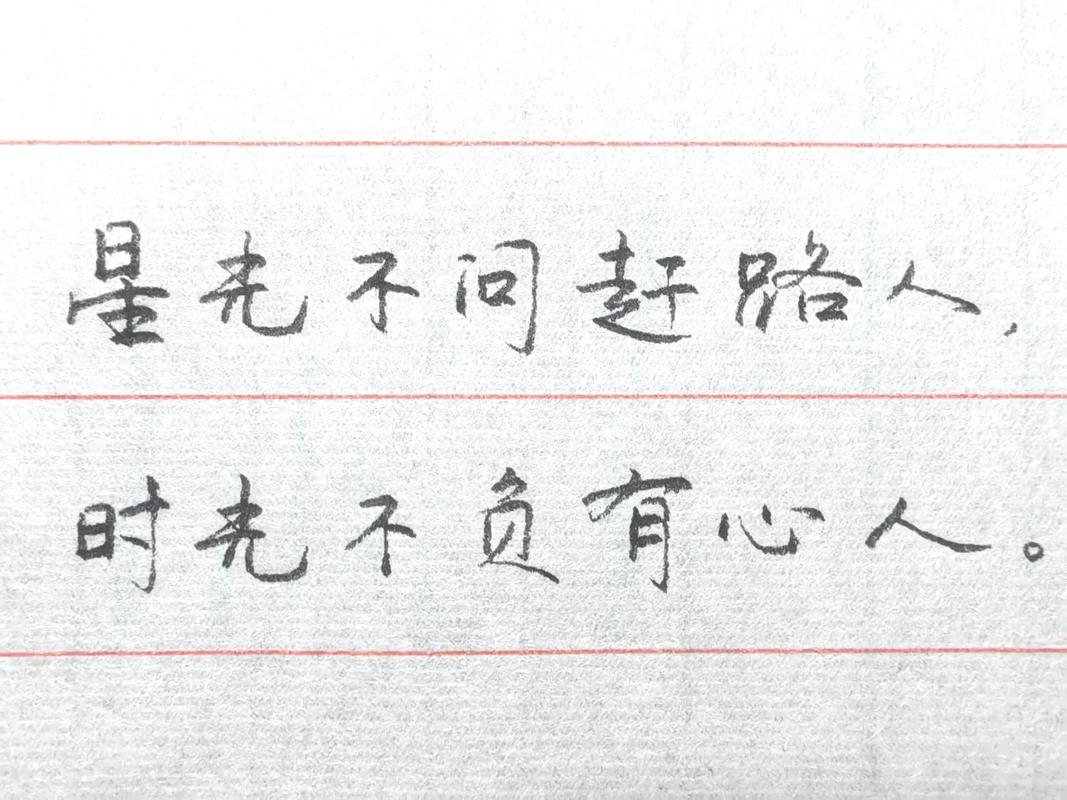 星光不问赶路人，
时光不负有心人。